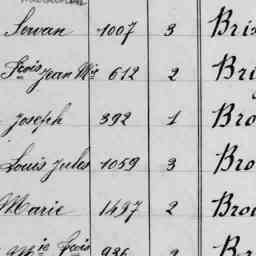 Servan 1007 3 Bri
Fcois Jean Mie 612 2 Bri
Joseph 392 1 Bro
Louis Jules 1059 3 Bro
Marie 1497 2 Bro
Mie Fcois